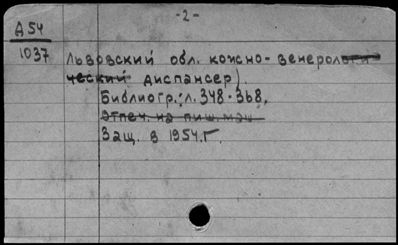 -2-
А 54
1037
Львовский обл. кожно-венерологи
ческий диспансер).
Библиогр.: л. 348-368,
Отпеч. на пиш. маш
Защ. в 1954 г.